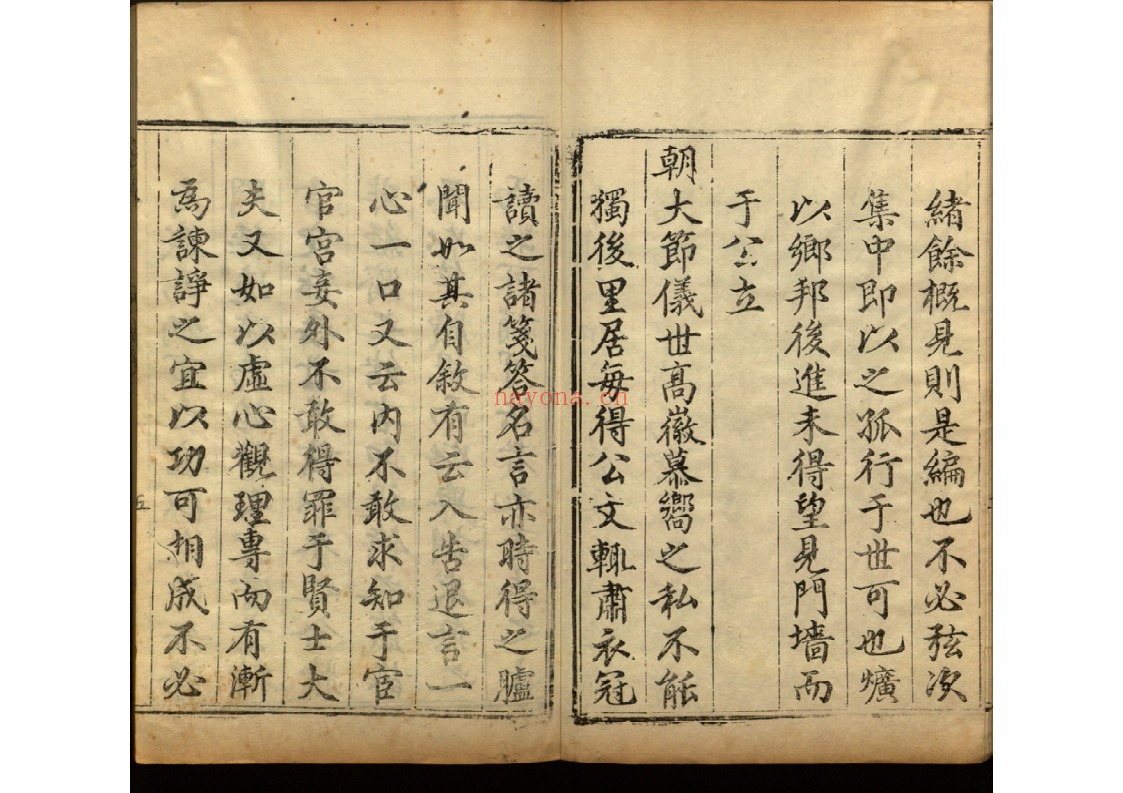 緒餘概見則是編也不必弦次
集中即以之孤行于世可也爌
以鄉邦後進未得望見門墻而
于公立
朝大節儀世高徽慕嚮之私不能
獨後里居每得公文輒肅衣冠
讀之諸箋答名言亦時得之臚
聞如其自敘有云入告退言一
心一口又云内不敢求知于宦
官宮妾外不敢得罪于賢士大
夫又如以虛心觀理專而有漸
為諫諍之宜以功可相成不必
五
nayona.cn